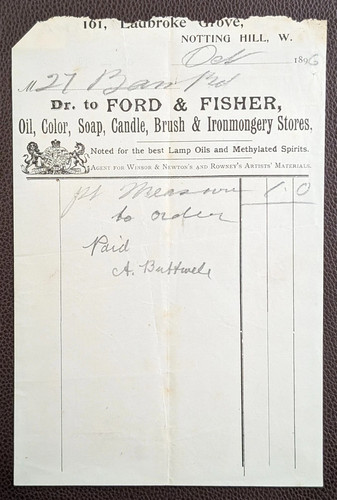 161, Ladbroke Grove,
NOTTING HILL, W.
Oct 1896
M 27 Rd
Dr. to FORD & FISHER,
Oil, Color, Soap, Candle, Brush & Ironmongery Stores.
Noted for the best Lamp Oils and Methylated Spirits.
AGENT FOR WINSOR & NEWTON'S AND ROWNEY'S ARTISTS' MATERIALS.
pt Measure 1 0
to order
Paid
A.